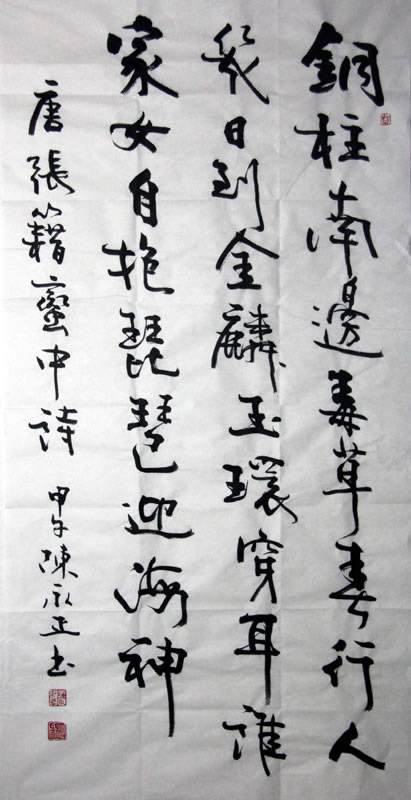 銅柱南邊毒草春行人
幾日到金麟玉環穿耳誰
家女自抱琵琶迎海神
唐張籍蠻中詩
甲午陳永正書